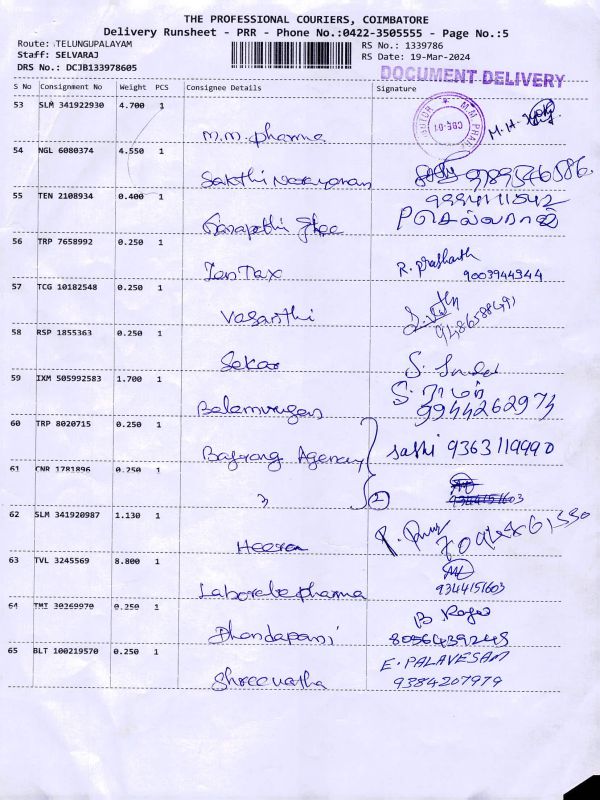 THE PROFESSIONAL COURIERS, COIMBATORE
Delivery Runsheet - PRR - Phone No.:0422-3505555 - Page No.:5
Route: TELUNGUPALAYAM
Staff: SELVARAJ
DRS No.: DCJB133978605
RS No.: 1339786
RS Date: 19-Mar-2024
DOCUMENT DELIVERY
S No Consignment No Weight PCS Consignee Details Signature
53 SLM 341922930 4.700 1
M.M. Pharma
54 NGL 6080374 4.550 1
Sakthi Narayanan
55 TEN 2108934 0.400 1
Ganapathi Ghee
56 TRP 7658992 0.250 1
R. Prashanth
9003944344
57 TCG 10182548 0.250 1
Vasanthi
58 RSP 1855363 0.250 1
Sekar
59 IXM 505992583 1.700 1
Balamurugan
9944262973
60 TRP 8020715 0.250 1
Bajrang Agency sathi 9363119990
61 CNR 1781896 0.250 1
2 9344151603
62 SLM 341920987 1.130 1
Heera
63 TVL 3245569 8.800 1
Laborate Pharma 9344151603
64 TMT 30269970 0.250 1
Dhandapani
65 BLT 100219570 0.250 1
E. PALAVESAM
Shreevatha 9384207979